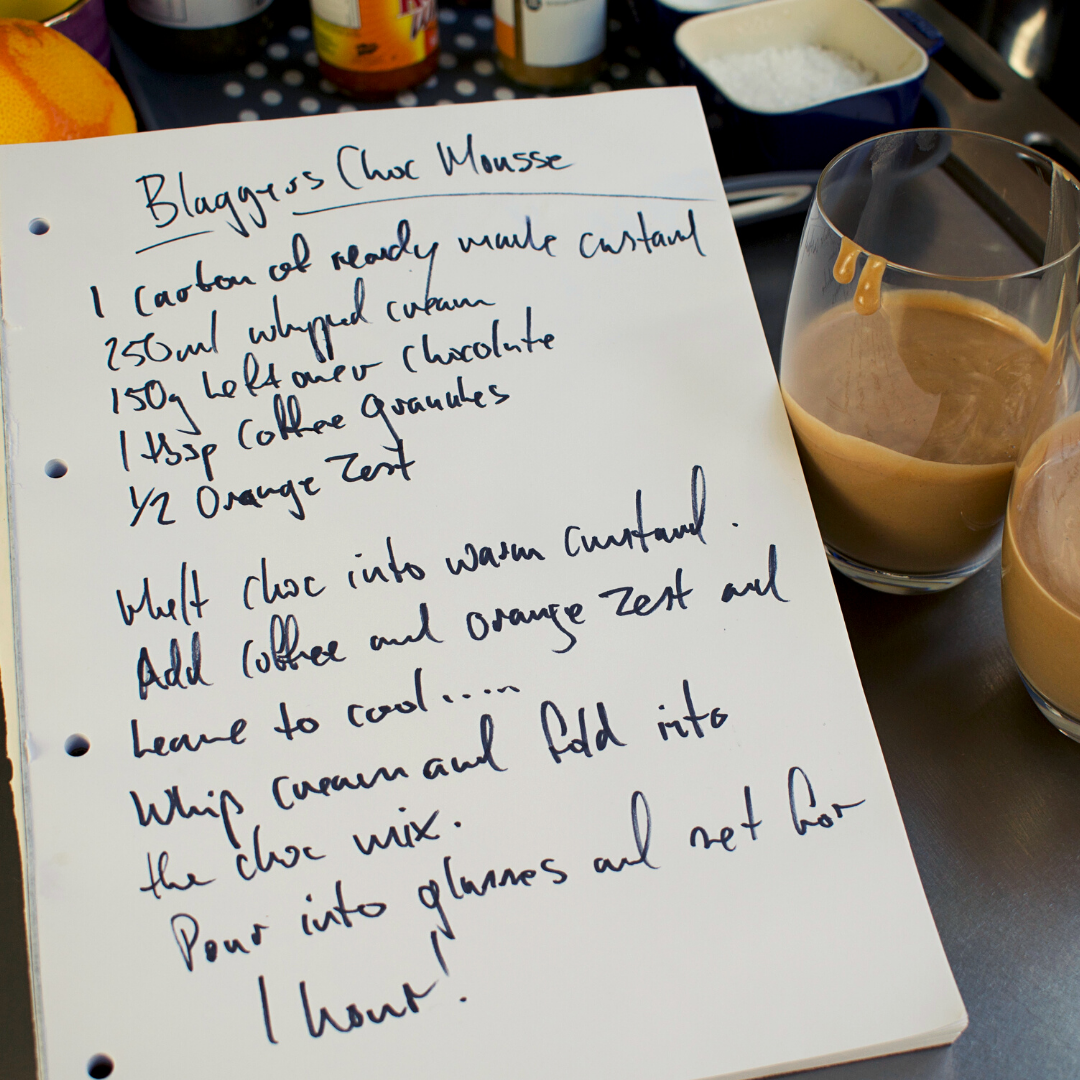 Blaggers Choc Mousse
1 Carton of ready made custard
250ml whipped cream
150g Left over Chocolate
1 tbsp Coffee Granules
1/2 Orange Zest
Melt choc into warm custard.
Add Coffee and orange Zest and
Leave to cool.....
Whip cream and fold into
the choc mix.
Pour into glasses and set for
1 hour!